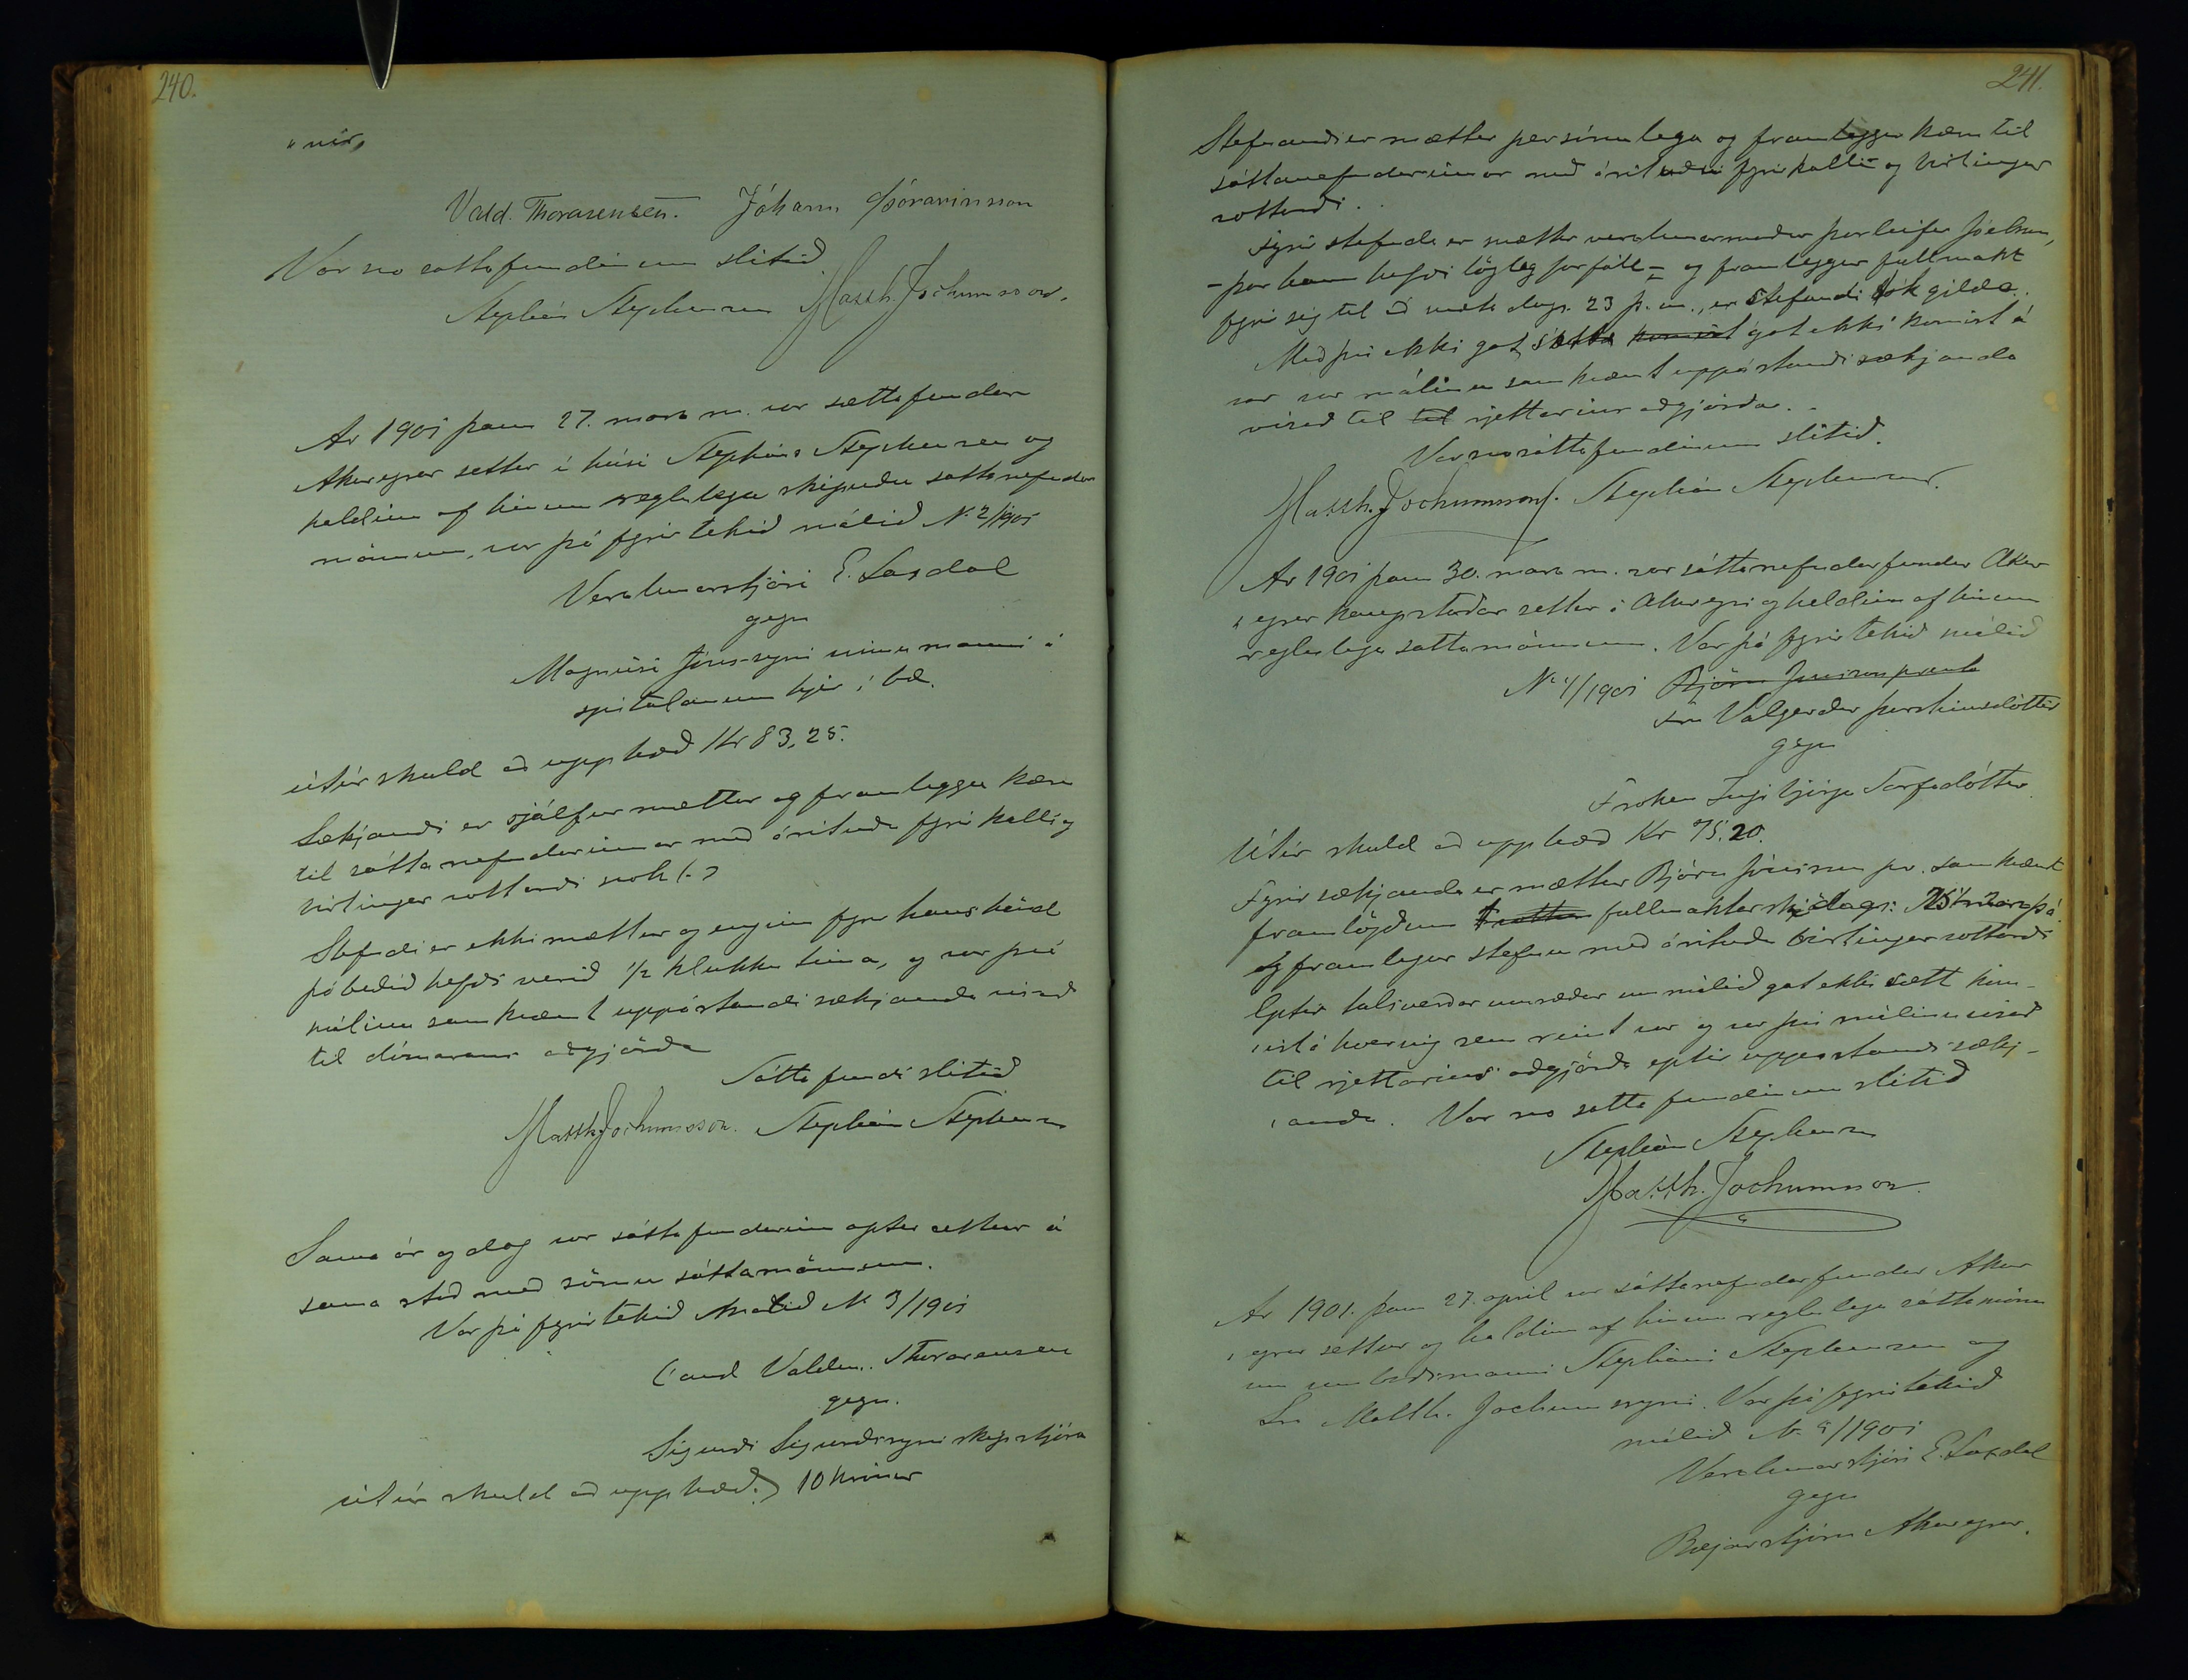 240.
„nir,
Vald. Thorarensen. Jóhann Þórarinsson
Var svo sáttafundinum slitið
Stephán Stephensen Matth. Jochumsson.
Ár 1901 þann 27. mars m. var sáttafundur
Akureyrar settur í húsi Stepháns Stephensen og
haldinn af hinum reglulegu skipuðu sáttanefndar
mönnum, var þá fyrirtekið málið N. 2/1901
Verslunarstjóri E. Laxdal
gegn
Magnúsi Jónssyni vinnumanni á
spítalanum hjer í bæ.
útúr skuld að upphæð Kr 83,25.
Sækjandi er sjálfur mættur og framleggur kæru
til sáttanefndarinnar með árituðu fyrirkalli og
birtingar vottorði
Stefndi er ekki mættur og enginn fyrir hans hönd
þó beðið hefði verið 1/2 klukku tíma, og var því
málinu samkvæmt uppástandi sækjanda vísað
til dómarans aðgjörða
Sáttafundi slitið
Matth Jochumsson. Stephán Stephensen
Sama ár og dag var sáttafundurinn aptur settur á
sama stað með sömu sáttamönnum.
Var þá fyrirtekið Málið N. 3/1901
Cand Valdm. Thorarensen
gegn.
Sigurði Sigurðssyni skipstjóra
útúr skuld að upphæð. 10 krónur
241.
Stefnandi er mættur persónulega og framleggur kæru til
sáttanefndarinnar með árituðu fyrirkalli og birtingar
vottorði.
Fyrir stefnda er mættur verslunarmaður Þorleifur Jóelsson,
- þar hann hefði lögleg forföll - og framleggur fullmakt
fyrir sig til að mæta dags. 23 þ.m., er stefnandi tók gilda.
Með því ekki gat sætta komist gat ekki komist á
var málinu samkvæmt uppástandi sækjanda
vísað til til rjettarins aðgjörða.
Var svo sáttafundinum slitið.
Matth. Jochumsson. Stephán Stephensen.
Ár 1901 þann 30. mars m. var sáttanefndarfundur Akur
„eyrar kaupstaðar settur á Akureyri og haldinn af hinum
reglulegu sáttamönnum. Var þá fyrirtekið málið
N. 4/1901 Björn Jónsson prent
Frú Valgerður Þorsteinsdóttir
gegn
Fröken Ingibjörgu Torfadóttur
Útúr skuld að upphæð Kr 75.20.
Fyrir sækjanda er mættur Björn Jónsson pr. samkvæmt
framlögðum fullmaktarskj dags: 25 mars þ.á.
og framlegur stefnu með árituðu birtingarvottorði
Eptir talsverðar umræður um málið gat ekki sætt kom-
ist á hvernig sem reynt var og var því málinu vísað
til rjettarins aðgjörða eptir uppástandi sækj-
anda. Var svo sáttafundinum slitið
Stephán Stephensen
Matth. Jochumsson.
Ár 1901. þann 27. apríl var sáttanefndarfundur Akur
eyrar settur og haldinn af hinum reglulegu sáttamönn
um umboðsmanni Stepháni Stephensen og
Sra Matth. Jochumssyni. Var þá fyrirtekið
málið N. 5/1901
Verslunarstjóri E. Laxdal
gegn
Bæjarstjórn Akureyrar.